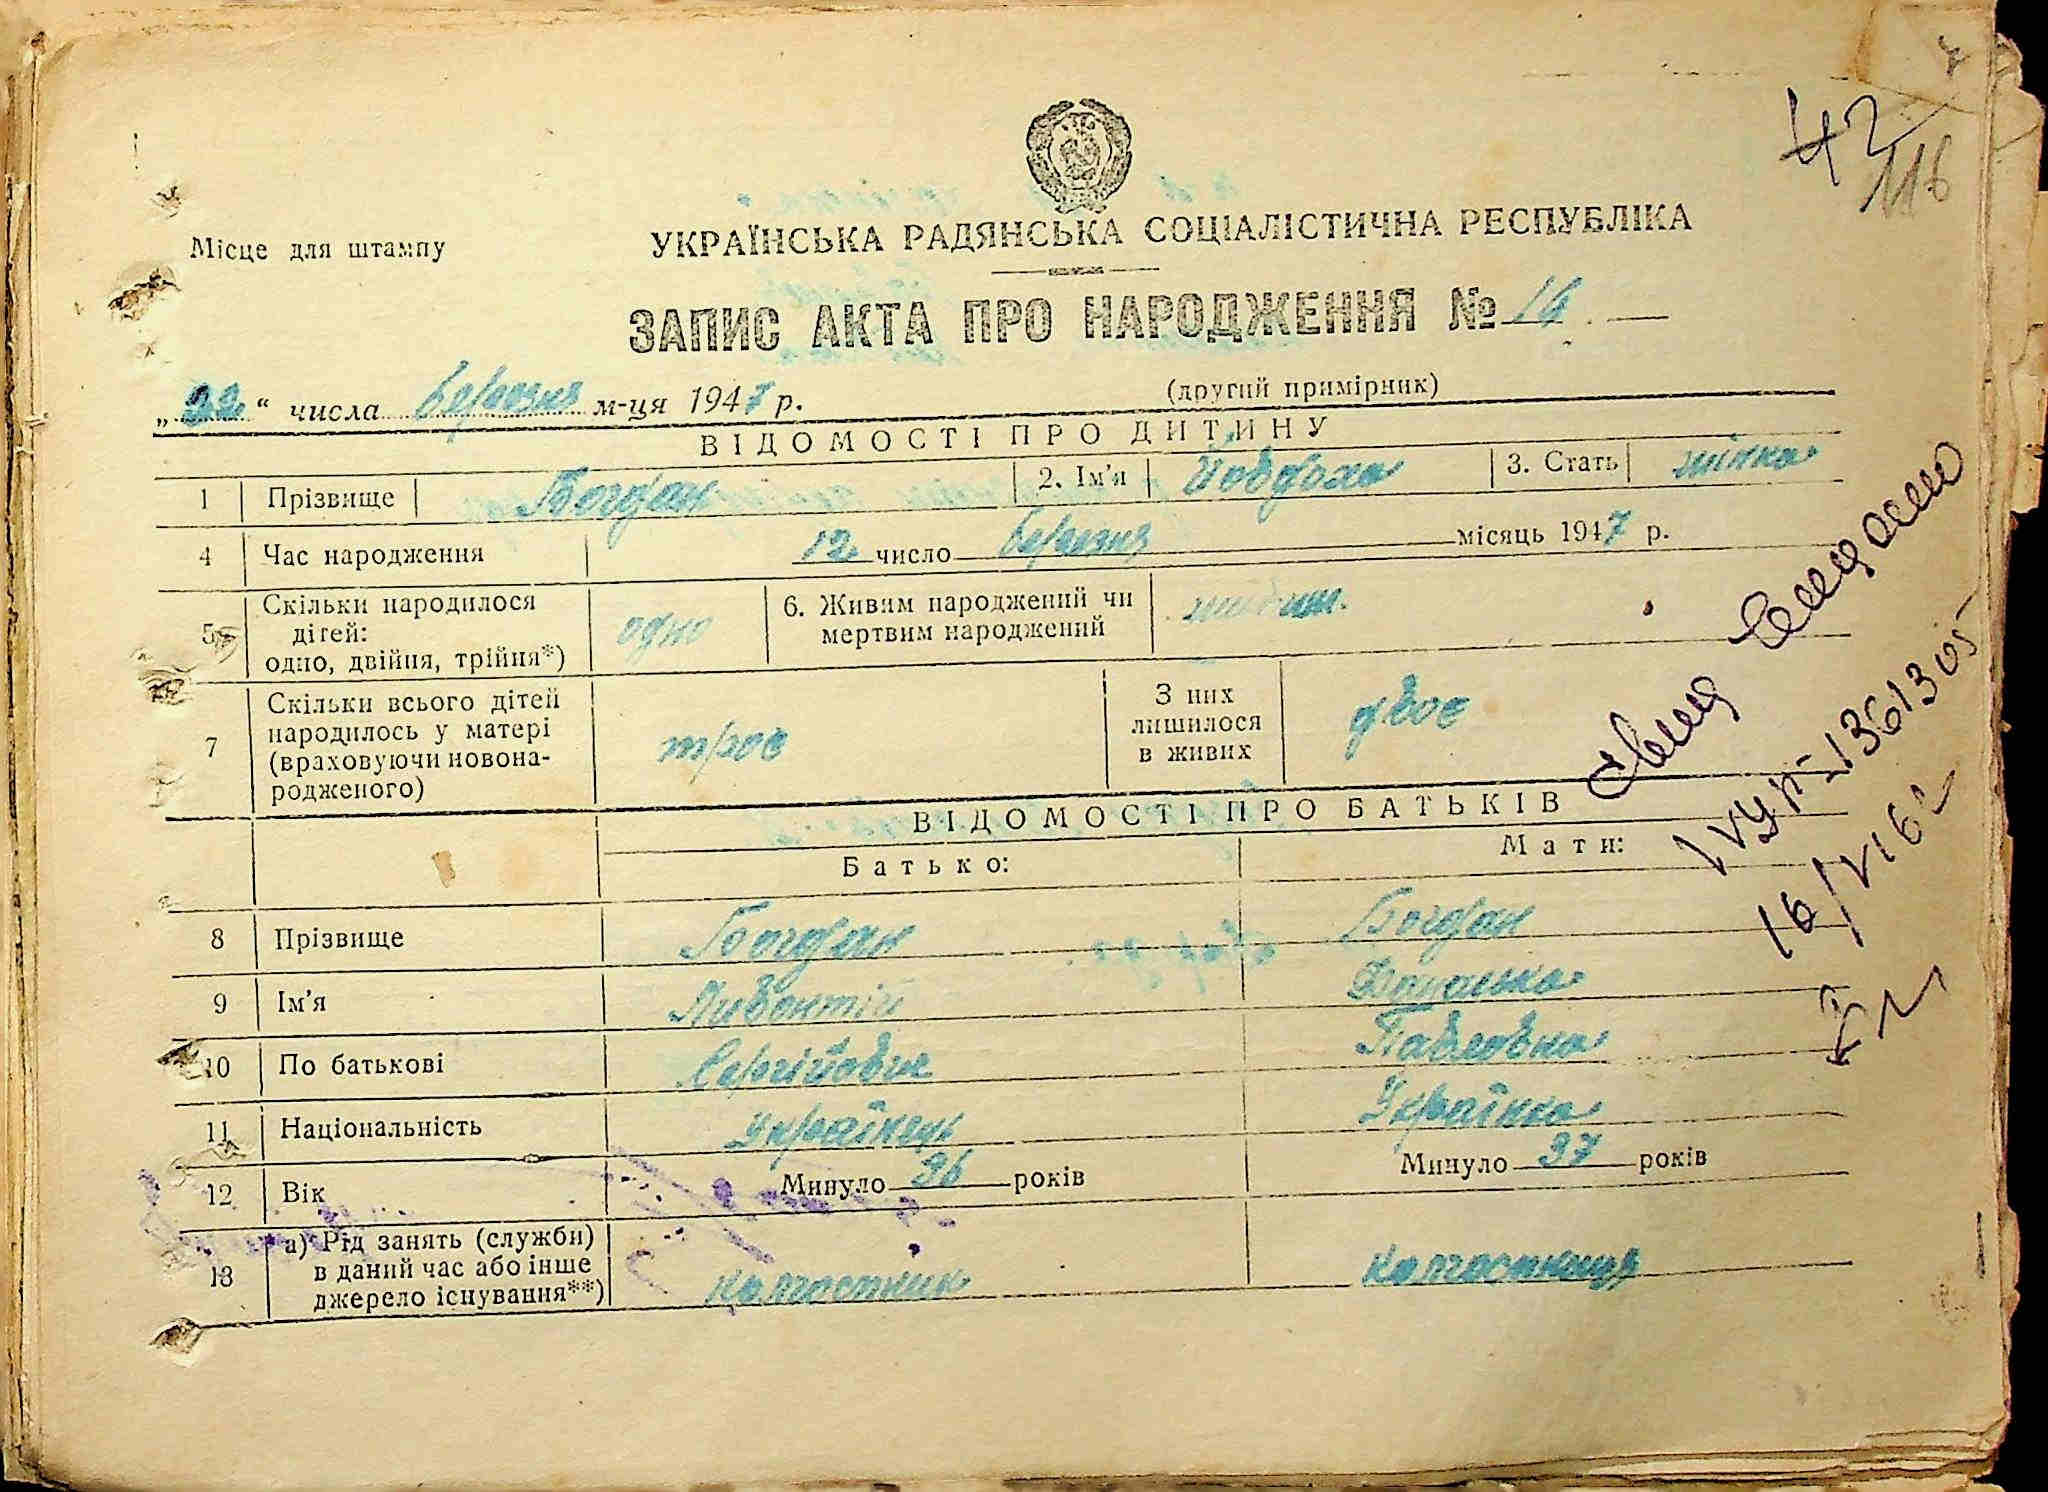 42
116
Місце для штампу
УКРАЇНСЬКА РАДЯНСЬКА СОЦІАЛІСТИЧНА РЕСПУБЛІКА
ЗАПИС АКТА ПРО НАРОДЖЕННЯ № 14
„22“ числа березня м-ця 1947 р.
(другий примірник)
ВІДОМОСТІ ПРО ДИТИНУ
1 Прізвище Богдан 2. Ім'я Йовдоха 3. Стать жінка
4 Час народження 12 число березня місяць 1947 р.
5 Скільки народилося дітей: одно, двійня, трійня*) одно 6. Живим народжений чи мертвим народжений живим.
7 Скільки всього дітей народилось у матері (враховуючи новонародженого) троє З них лишилося в живих двоє
ВІДОМОСТІ ПРО БАТЬКІВ
Батько: Мати:
8 Прізвище Богдан Богдан
9 Ім'я Ливонтій
10 По батькові Сергійович Павловна
11 Національність Українець Українка
12 Вік Минуло 36 років Минуло 37 років
13 а) Рід занять (служби) в даний час або інше джерело існування**) колгостник колгостниця